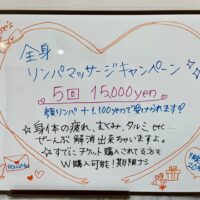 全身
リンパマッサージキャンペーン
5回 15,000yen
顔リンパ +1,100yenで受けられます♡
☆身体の疲れ、むくみ、タルミ etc...
ぜーんぶ 解消出来ちゃいますよ。
☆すでにチケット購入されてる方も
W購入可能！期限ナシ